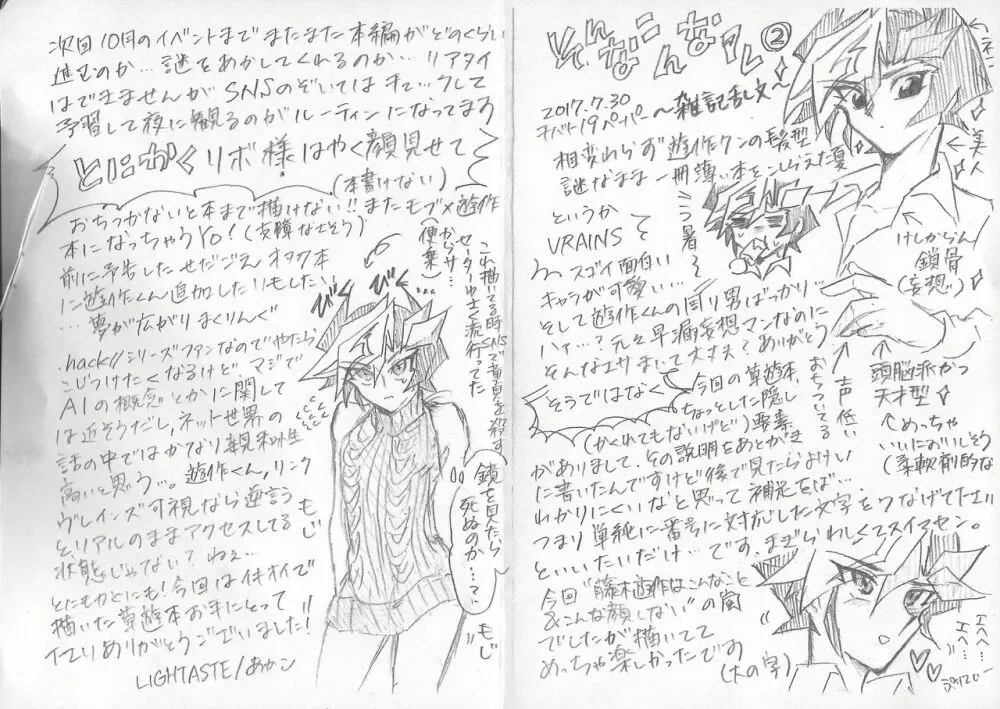 そんなこんなで②
2017.7.30
キバト19ペーパー 〜雑記乱文〜
相変わらず"遊作クンの髪型
謎なまま一冊薄い本をこしらえた夏
というか
VRAINS
スゴイ面白い
キャラが可愛い…
そして遊作くんの周り男ばっかり…
ハァ…?元々早漏妄想マンなのに
そんなエサまいて大丈夫?ありがとう
そうではなく
今回の草遊本、
ちょっとした隠し
(かくれてもないけど)要素
がありまして、その説明をあとがき
に書いたんですけど後で見たらよけい
わかりにくいなと思って補足をば…
つまり単純に番号に対応した文字をつなげてたま
といいたいだけ…です、まぎらわしくてスイマセン。
今回"藤木遊作はこんなこと
&こんな顔しない"の嵐
でしたが描いてて
めっちゃ楽しかったです
(大の字)
クソ暑〜
←ネコ
←美人
けしからん
鎖骨
(妄想)
↑声低い
おちついてる
↑
頭脳派かつ
天才型
↑めっちゃ
いいにおいしそう
(柔軟剤的な
エヘヘ…
エヘヘ…
次回10月のイベントまでまたまた本編がどのくらい
進むのか…謎をあかしてくれるのか…リアタイ
はできませんがSNSのぞいてはキて…クして
予習して夜に観るのがルーティンになってます
とにかくリボ様はやく顔見せて
(本書けない)
おちつかないと本まで描けない!!またモブ×遊作
本になっちゃうYo!(支障なさそう)
前に予告したせだごえオタク本
に遊作くん追加したりもしたい
…夢が広がりまくりんぐ
.hack//シリーズファンなのでやたら
こじつけたくなるけど、マジで
AIの概念とかに関して
は近そうだし、ネット世界の
話の中ではかなり親和性
高いと思う…。遊作くん、リンク
ヴレインズ可視なら逆言う
と、リアルのままアクセスしてる
状態じゃない?ねぇ…
とにもかくにも!今回はイキオイで
描いた草遊本お手にとって
イてりありがとうございました!
LIGHTASTE/あかこ
これ描いてる時SNSで童貞を殺す
セーターゆさく流行ってた
からサ…
(便乗)
びぐ びぐ
鎖を見たら
死ぬのか…?
もじ
もじ